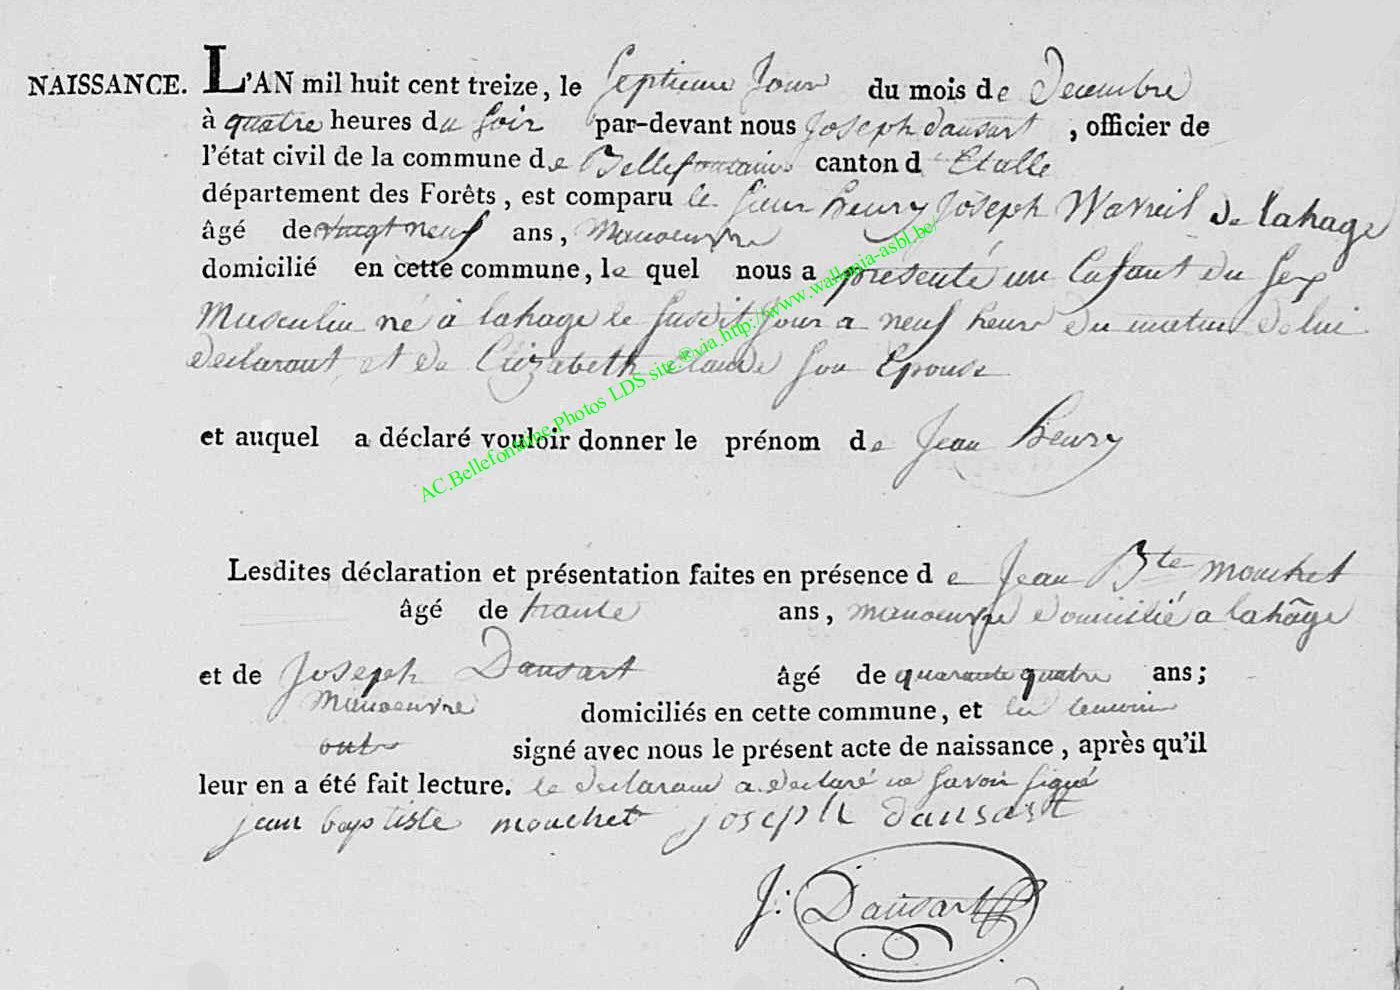 NAISSANCE. L'AN mil huit cent treize, le septieme Jour du mois de Decembre
à quatre heures du soir par-devant nous Joseph dausart, officier de
l'état civil de la commune de Bellefontaine canton d'Etalle
département des Forêts, est comparu le sieur henry Joseph Warvil de lahage
âgé de vingt neuf ans, Manoeuvre
domicilié en cette commune, le quel nous a présenté un Enfant du sex
Musculin né à lahage le susdit jour a neuf heur du matin de lui
declarant et de Elizabeth claude son Epouse
et auquel a déclaré vouloir donner le prénom de Jean henry
Lesdites déclaration et présentation faites en présence de Jean Bte mouchet
âgé de trante ans, manoeuvre domicilié a lahâge
et de Joseph Dausart âgé de quarante quatre ans;
Manoeuvre domiciliés en cette commune, et les temoin
ont signé avec nous le présent acte de naissance, après qu'il
leur en a été fait lecture. le declarant a declaré ne savoir signé
jean baptiste mouchet joseph dausart
J: Dausart
AC.Bellefontaine.Photos LDS site.®via.http://www.wallonia-asbl.be/